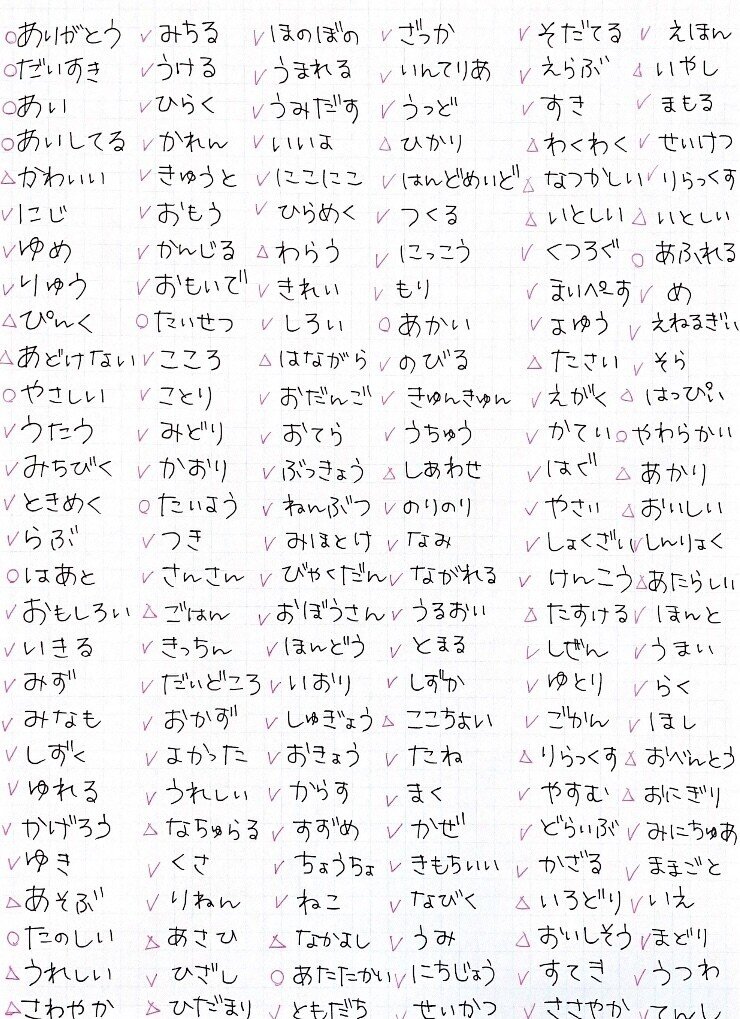 ありがとう
だいすき
あい
あいしてる
かわいい
にじ
ゆめ
りゅう
ぴんく
あどけない
やさしい
うたう
みちびく
ときめく
らぶ
はあと
おもしろい
いきる
みず
みなも
しずく
ゆれる
かげろう
ゆき
あそぶ
たのしい
うれしい
さわやか
みちる
うける
ひらく
かれん
きゅうと
おもう
かんじる
おもいで
たいせつ
こころ
ことり
みどり
かおり
たいよう
つき
さんさん
ごはん
きっちん
だいどころ
おかず
よかった
うれしい
なちゅらる
くさ
りねん
あさひ
ひざし
ひだまり
ほのぼの
うまれる
うみだす
いいよ
にこにこ
ひらめく
わらう
きれい
しろい
はながら
おだんご
おてら
ぶっきょう
ねんぶつ
みほとけ
びゃくだん
おぼうさん
ほんどう
いおり
しゅぎょう
おきょう
からす
すずめ
ちょうちょ
ねこ
なかよし
あたたかい
ともだち
ざっか
いんてりあ
うっど
ひかり
はんどめいど
つくる
にっこう
もり
あかい
のびる
きゅんきゅん
うちゅう
しあわせ
のりのり
なみ
ながれる
うるおい
とまる
しずか
ここちよい
たね
まく
かぜ
きもちいい
なびく
うみ
にちじょう
せいかつ
そだてる
えらぶ
すき
わくわく
なつかしい
いとしい
くつろぐ
まいぺーす
よゆう
たさい
えがく
かてい
はぐ
やさい
しょくざい
けんこう
たすける
しぜん
ゆとり
ごかん
りらっくす
やすむ
どらいぶ
かざる
いろどり
おいしそう
すてき
ささやか
えほん
いやし
まもる
せいけつ
りらっくす
いとしい
あふれる
め
えねるぎい
そら
はっぴい
やわらかい
あかり
おいしい
しんりょく
あたらしい
ほんと
うまい
らく
ほし
おべんとう
おにぎり
みにちゅあ
ままごと
いえ
まどり
うつわ
てんし